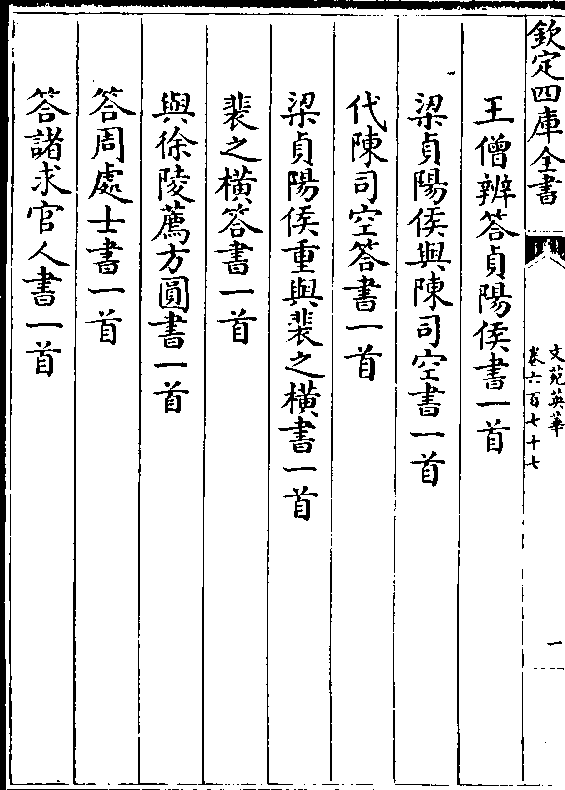 欽定四庫全書
文苑英華
卷六百七十七
一
王僧辨答貞陽侯書一首
梁貞陽侯與陳司空書一首
代陳司空答書一首
梁貞陽侯重與裴之橫書一首
裴之橫答書一首
與徐陵薦方圓書一首
答周處士書一首
答諸求官人書一首